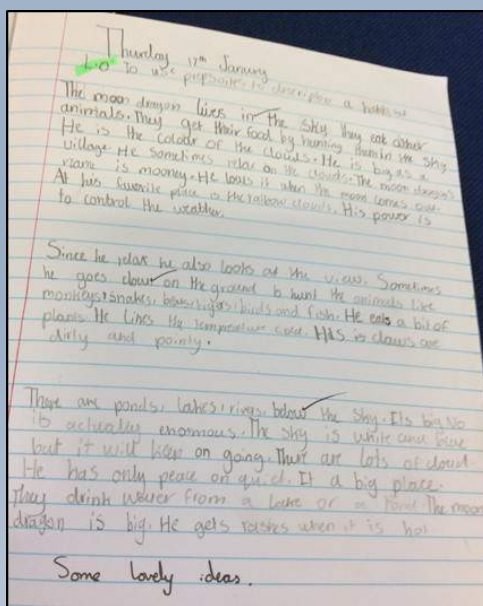 Thursday 17th January
L.O To use prepositions to describe a habitat
The moon dragon lives in the sky they eat other
animals. They get their food by hunting them in the sky
He is the colour of the clouds. He is big as a
village. He sometimes relax on the clouds. The moon dragon's
name is mooney. He loves it when the moon comes out.
At his favorite place is the rainbow clouds. His power is
to control the weather.
Since he relax he also looks at the view. Sometimes
he goes down on the ground to hunt the animals like
monkeys, snakes, bears, tigers, birds and fish. He eats a bit of
plants He likes the temperature cold. His is claws are
dirty and pointy.
There are ponds, lakes, rivers, below the sky. Its big No
its actually enormous. The sky is white and blue
but it will keep on going. There are lots of cloud.
He has only peace on quiet. It a big place.
They drink water from a lake or a pond. The moon
dragon is big. He gets rashes when it is hot
Some lovely ideas.